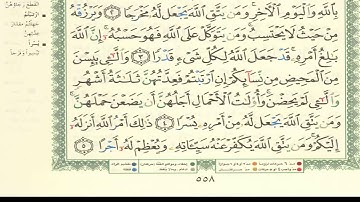 بِٱللَّهِ وَٱلْيَوْمِ ٱلْءَاخِرِ ۚ وَمَن يَتَّقِ ٱللَّهَ يَجْعَل لَّهُۥ مَخْرَجًا ٢ وَيَرْزُقْهُ
مِنْ حَيْثُ لَا يَحْتَسِبُ ۚ وَمَن يَتَوَكَّلْ عَلَى ٱللَّهِ فَهُوَ حَسْبُهُۥٓ ۚ إِنَّ ٱللَّهَ
بَٰلِغُ أَمْرِهِۦ ۚ قَدْ جَعَلَ ٱللَّهُ لِكُلِّ شَىْءٍ قَدْرًا ٣ وَٱلَّٰٓـِٔى يَئِسْنَ
مِنَ ٱلْمَحِيضِ مِن نِّسَآئِكُمْ إِنِ ٱرْتَبْتُمْ فَعِدَّتُهُنَّ ثَلَٰثَةُ أَشْهُرٍ
وَٱلَّٰٓـِٔى لَمْ يَحِضْنَ ۚ وَأُو۟لَٰتُ ٱلْأَحْمَالِ أَجَلُهُنَّ أَن يَضَعْنَ حَمْلَهُنَّ ۚ
وَمَن يَتَّقِ ٱللَّهَ يَجْعَل لَّهُۥ مِنْ أَمْرِهِۦ يُسْرًا ٤ ذَٰلِكَ أَمْرُ ٱللَّهِ أَنزَلَهُۥٓ
إِلَيْكُمْ ۚ وَمَن يَتَّقِ ٱللَّهَ يُكَفِّرْ عَنْهُ سَيِّـَٔاتِهِۦ وَيُعْظِمْ لَهُۥٓ أَجْرًا ٥
٥٥٨